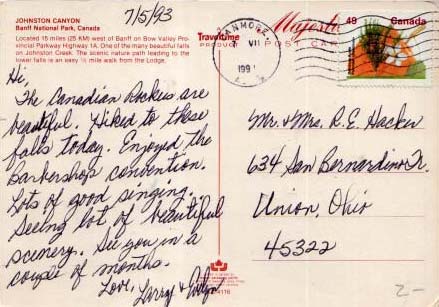 JOHNSTON CANYON
Banff National Park, Canada
Located 15 miles (25 KM) west of Banff on Bow Valley Pro-
vincial Parkway Highway 1A. One of the many beautiful falls
on Johnston Creek. The scenic nature path leading to the
lower falls is an easy ½ mile walk from the Lodge.
7/5/93
Hi,
The Canadian Rockies are
beautiful. Hiked to these
falls today. Enjoyed the
Barbershop convention.
Lots of good singing.
Seeing lot of beautiful
scenery. See you in a
couple of months.
Love, Larry & Evelyn
Traveltime
PRODUCT
Majestic
POST CARD
CANMORE
VII
199
49
Canada
Mr. & Mrs. R. E. Hacker
634 San Bernardino Tr.
Union, Ohio
45322
2-